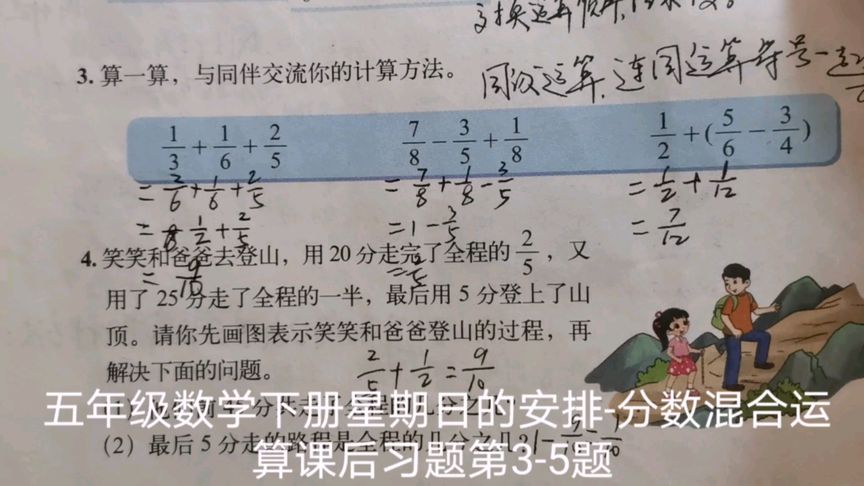 交换运算顺序,
3. 算一算，与同伴交流你的计算方法。
同级运算，连同运算符号一起
1/3 + 1/6 + 2/5
7/8 - 3/5 + 1/8
1/2 + (5/6 - 3/4)
= 2/6 + 1/6 + 2/5
= 7/8 + 1/8 - 3/5
= 1/2 + 1/12
= 1/2 + 2/5
= 1 - 3/5
= 7/12
4. 笑笑和爸爸去登山，用 20 分走完了全程的 2/5，又
= 9/10
= 2/5
用了 25 分走了全程的一半，最后用 5 分登上了山
顶。请你先画图表示笑笑和爸爸登山的过程，再
解决下面的问题。
2/5 + 1/2 = 9/10
五年级数学下册星期日的安排-分数混合运
(2) 最后 5 分走的路程是全程的几分之几? 1 - 9/10 = 1/10
算课后习题第3-5题